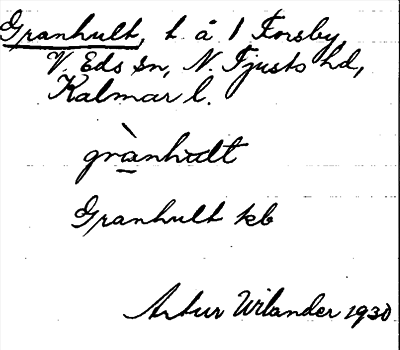 Granhult, t. å 1 Forsby,
V. Eds sn, N. Tjusts hd,
Kalmar l.
grànhult
Granhult kb
Artur Wilander 1930